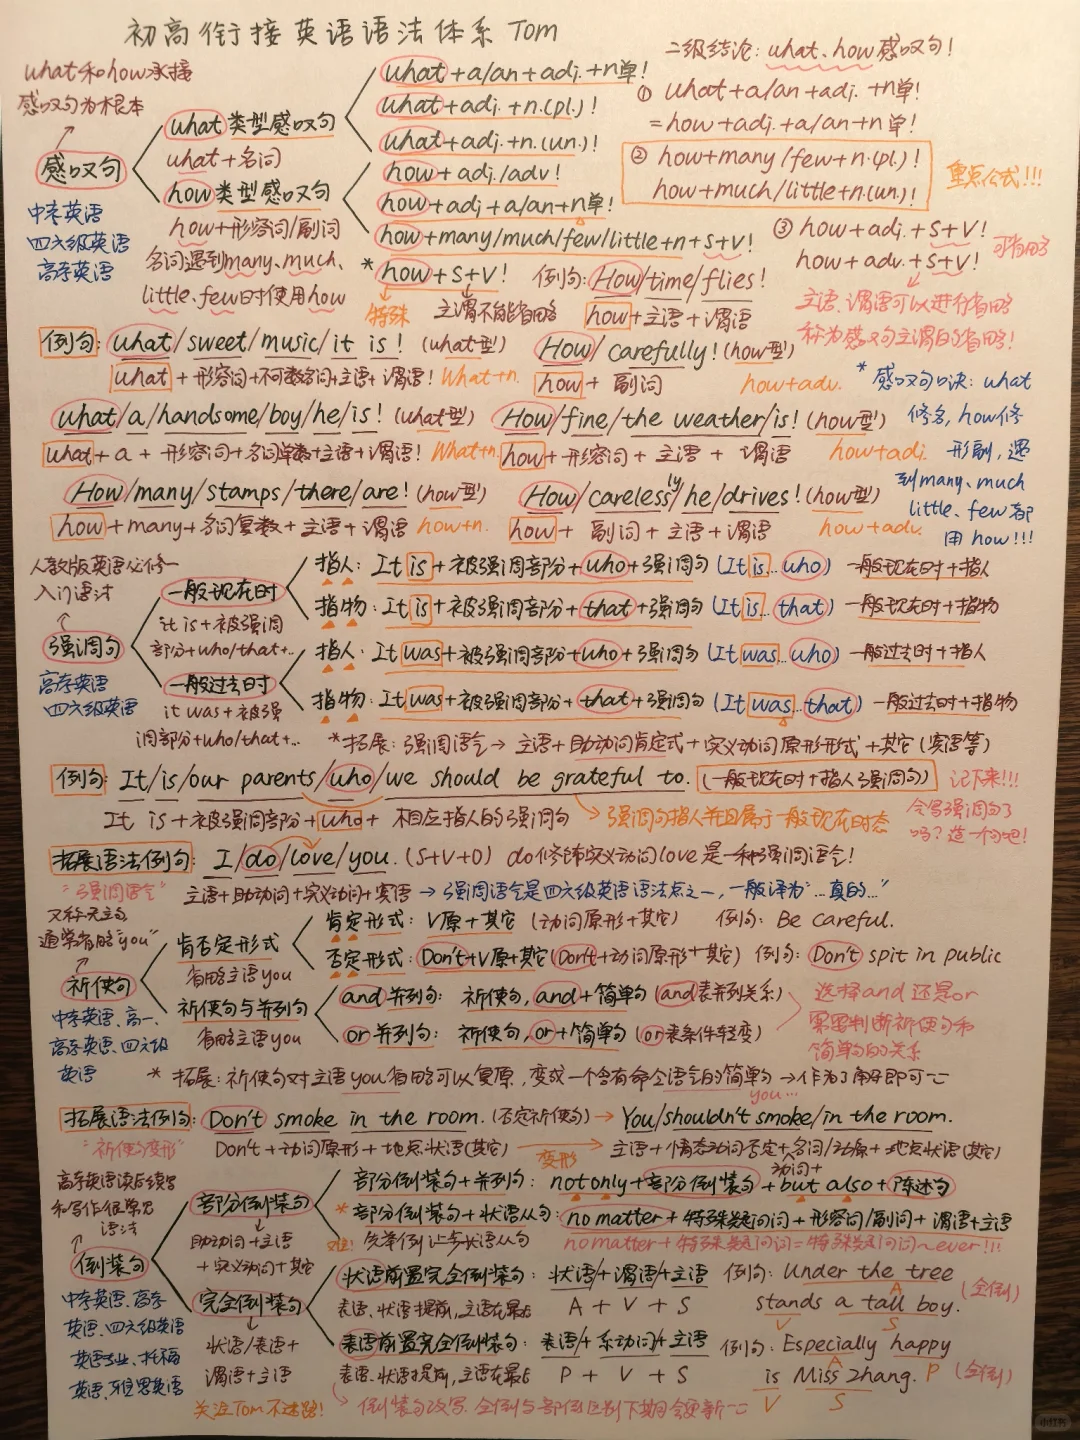 初高衔接英语语法体系 Tom
what和how承接
感叹句为根本
感叹句
中考英语
四六级英语
高考英语
what类型感叹句
what+名词
how类型感叹句
how+形容词/副词
名词遇到many、much、
little、few时使用how
what+a/an+adj.+n单!
what+adj.+n.(pl.)!
what+adj.+n.(un.)!
how+adj./adv!
how+adj+a/an+n单!
how+many/much/few/little+n+S+V!
*how+S+V!
特殊
主谓不能省略
例句: How/time/flies!
how+主语+谓语
二级结论: what、how感叹句!
① what+a/an+adj. +n单!
=how+adj.+a/an+n单!
② how+many/few+n.(pl.)!
how+much/little+n.(un.)!
重点公式!!!
③ how+adj.+S+V!
how+adv.+S+V!
可省略
主语、谓语可以进行省略
称为感叹句主谓的省略!
例句: what/sweet/music/it is! (what型)
what+形容词+不可数名词+主语+谓语! What+n.
How/carefully! (how型)
how+副词 how+adv.
what/a/handsome/boy/he/is! (what型)
what+a+形容词+名词单数+主语+谓语! What+n.
How/fine/the weather/is! (how型)
how+形容词+主语+谓语 how+adj.
How/many/stamps/there/are! (how型)
how+many+名词复数+主语+谓语 how+n.
How/carelessly/he/drives! (how型)
how+副词+主语+谓语 how+adv.
*感叹句口诀: what
修名, how修
形副, 遇
到many、much
little、few都
用how!!!
人教版英语必修一
入门语法
强调句
高考英语
四六级英语
一般现在时
it is+被强调
部分+who/that+..
一般过去时
it was+被强
调部分+who/that+..
指人: It is+被强调部分+who+强调句 (It is...who) 一般现在时+指人
指物: It is+被强调部分+that+强调句 (It is...that) 一般现在时+指物
指人: It was+被强调部分+who+强调句 (It was...who) 一般过去时+指人
指物: It was+被强调部分+that+强调句 (It was...that) 一般过去时+指物
*拓展: 强调语气→主语+助动词肯定式+实义动词原形形式+其它(宾语等)
例句: It/is/our parents/who/we should be grateful to. (一般现在时+指人强调句)
It is+被强调部分+who+相应指人的强调句 →强调句指人并且属于一般现在时态
记下来!!!
会写强调句了
吗?造一个吧!
拓展语法例句: I/do/love/you. (S+V+O) do修饰实义动词love是一种强调语气!
"强调语气" 主语+助动词+实义动词+宾语→强调语气是四六级英语语法点之一, 一般译为"...真的..."
又称无主句
通常省略"you"
祈使句
中考英语、高一、
高考英语、四六级
英语
肯否定形式
省略主语you
祈使句与并列句
省略主语you
肯定形式: V原+其它 (动词原形+其它) 例句: Be careful.
否定形式: Don't+V原+其它(Don't+动词原形+其它) 例句: Don't spit in public
and并列句: 祈使句, and+简单句 (and表并列关系)
or并列句: 祈使句, or+简单句 (or表条件转变)
选择and还是or
需要判断祈使句和
简单句的关系
*拓展: 祈使句对主语you省略可以复原, 变成一个含有命令语气的简单句→作为了解即可
you...
拓展语法例句: Don't smoke in the room. (否定祈使句)→You/shouldn't smoke/in the room.
"祈使句变形" Don't+动词原形+地点状语(其它) 变形 主语+情态动词否定+名词/动原+地点状语(其它)
动词+
高考英语读后续写
和写作很常见
语法
倒装句
中考英语、高考
英语、四六级英语
英语专业、托福
英语、雅思英语
部分倒装句
助动词+主语
+实义动词+其它
完全倒装句
状语/表语+
谓语+主语
部分倒装句+并列句: not only+部分倒装句+but also+陈述句
*部分倒装句+状语从句: no matter+特殊疑问词+形容词/副词+谓语+主语
先举例让步状语从句 no matter+特殊疑问词=特殊疑问词~ever!!!
状语前置完全倒装句: 状语/+谓语/+主语 例句: Under the tree
表语、状语提前, 主语在最后 A+V+S stands a tall boy. (全倒)
A
V S
表语前置完全倒装句: 表语/+系动词/+主语 例句: Especially happy
表语、状语提前, 主语在最后 P+V+S is Miss zhang. P (全倒)
A
V S
关注Tom不迷路! 倒装句改写、全倒与部倒区别下期会更新
小红书